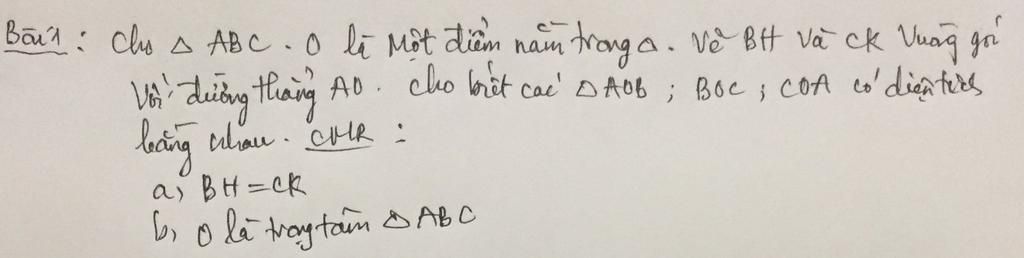 Bài 1 : Cho △ ABC . O là một điểm nằm trong △ . Vẽ BH và CK vuông góc
với đường thẳng AO . Cho biết các △ AOB ; BOC ; COA có diện tích
bằng nhau . CMR :
a, BH = CK
b, O là trọng tâm △ ABC